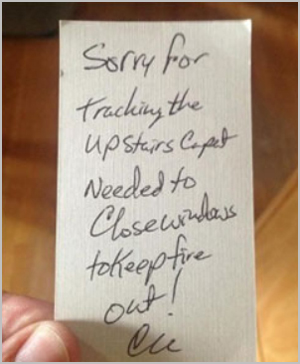 Sorry for
tracking the
upstairs Capet
Needed to
Close windows
to Keep fire
out!